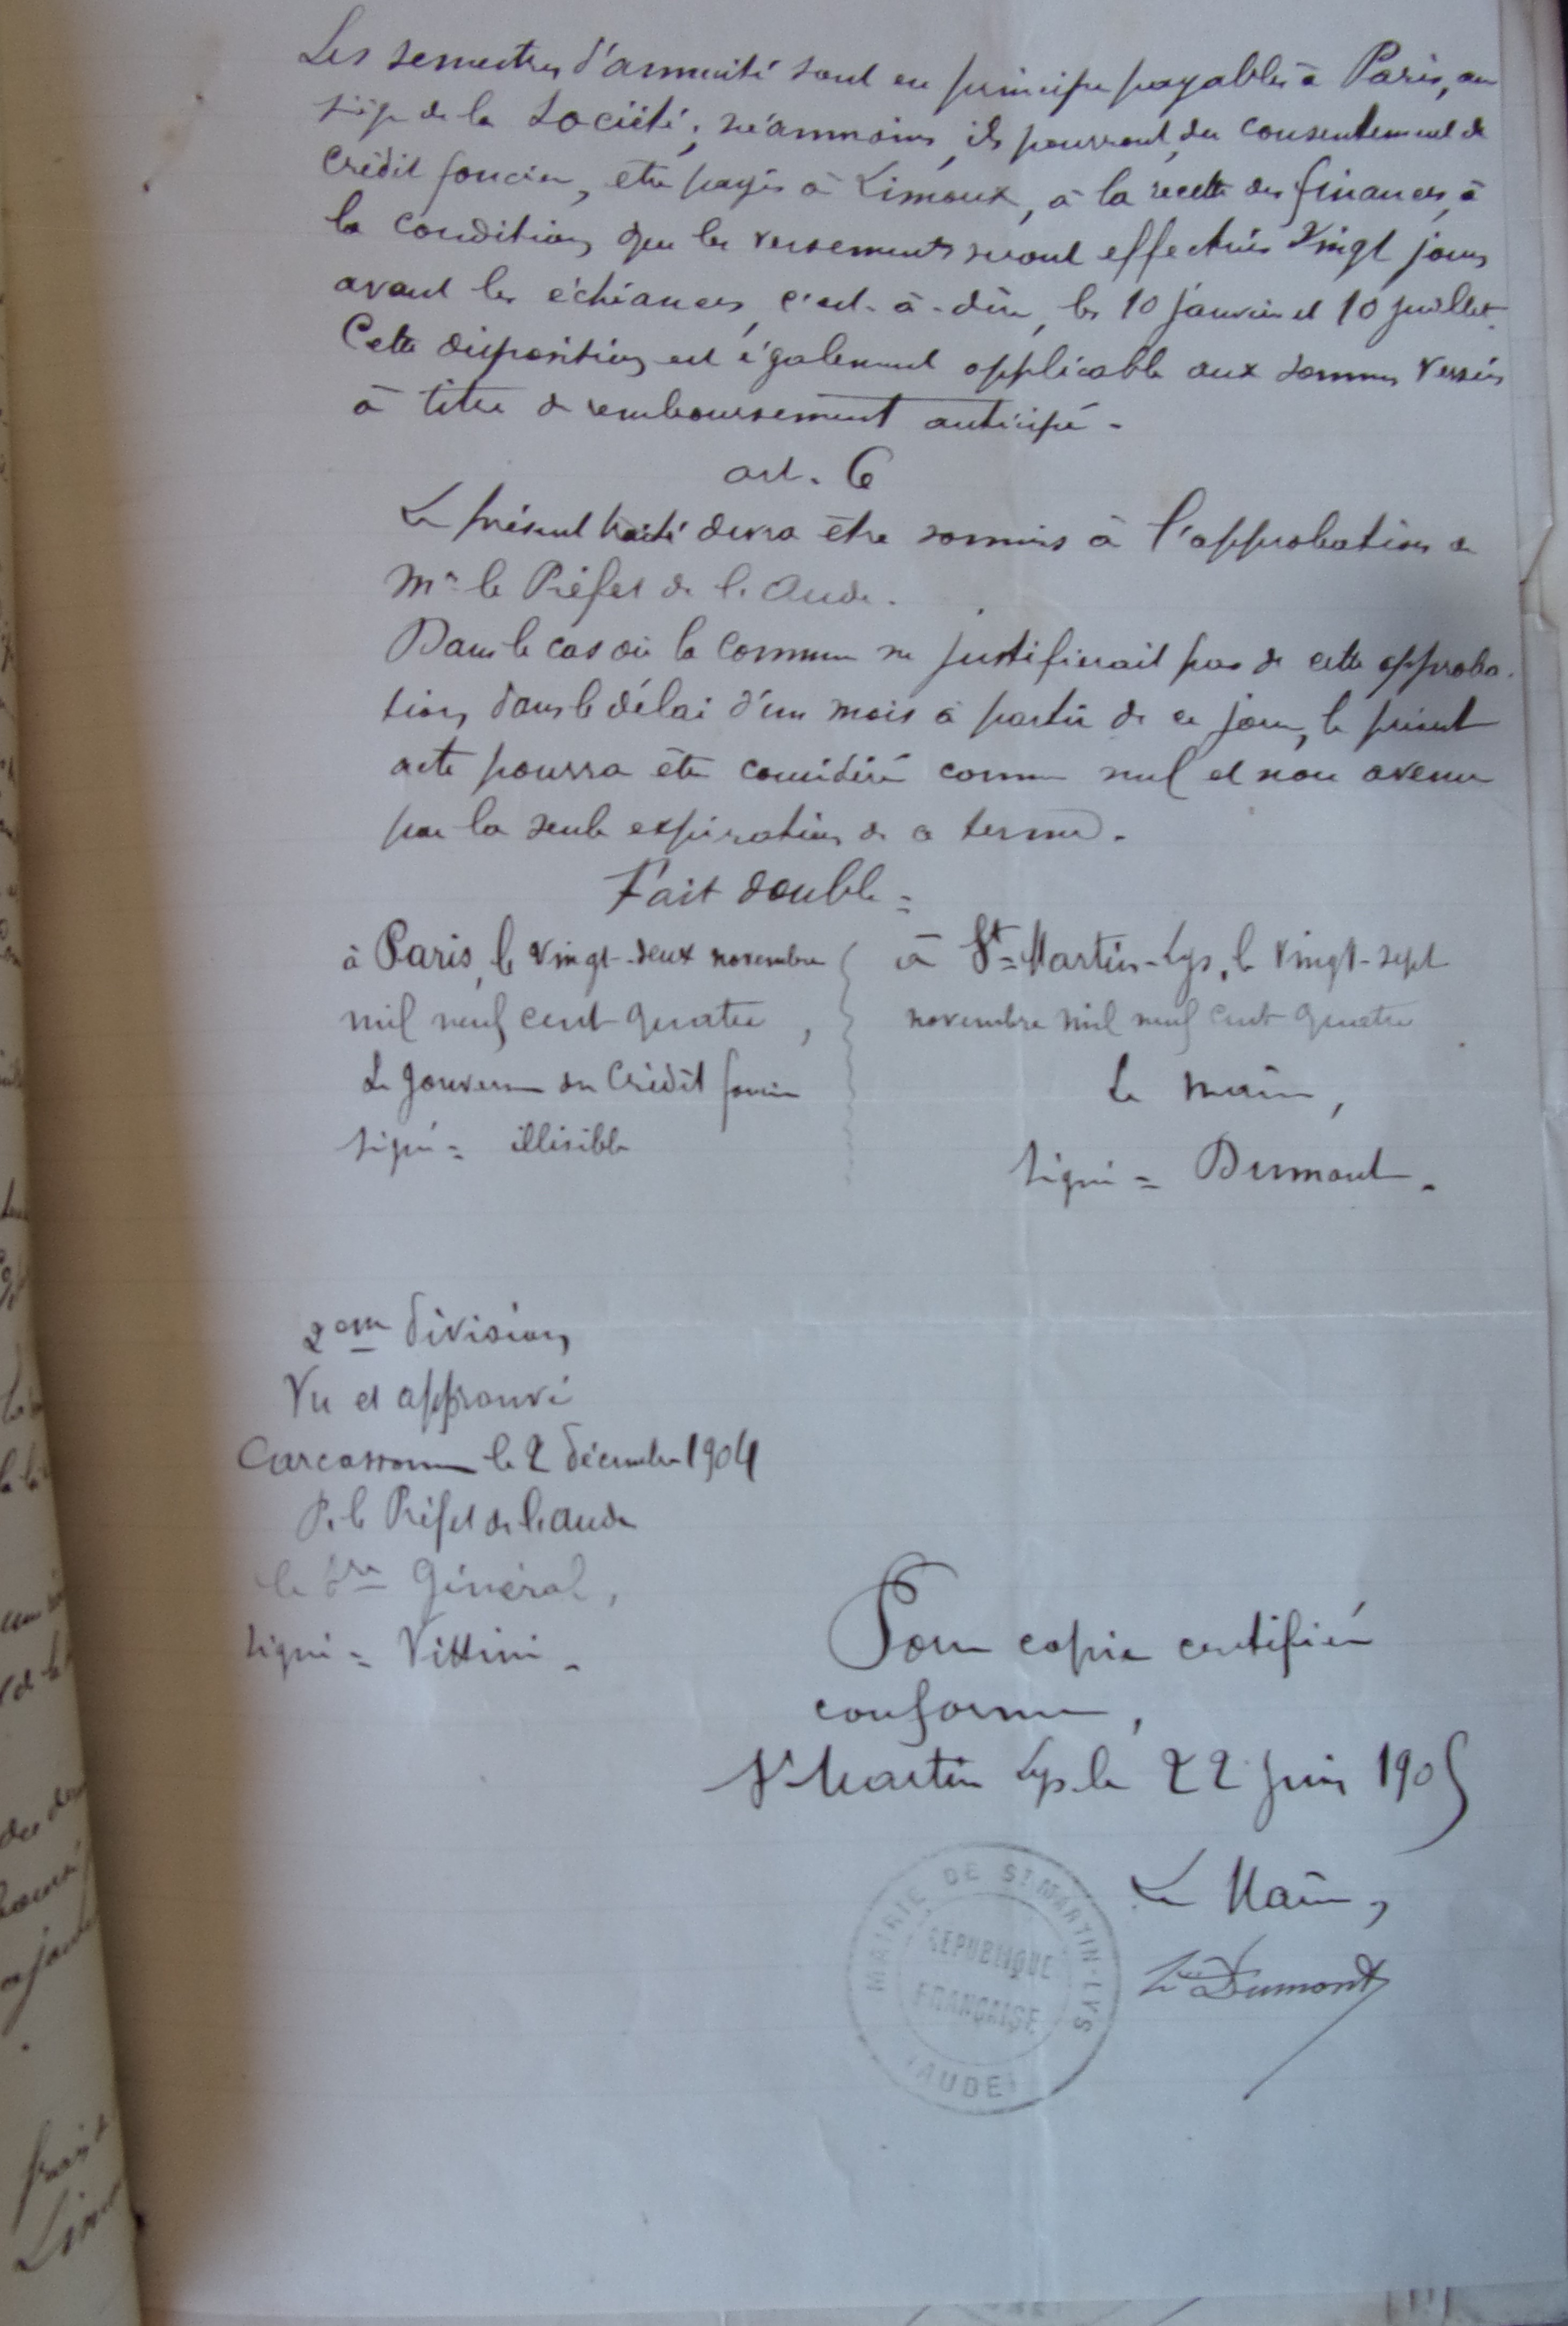 Les semestres d'annuité sont en principe payables à Paris, au
siège de la Société; néanmoins, ils pourront, du consentement du
Crédit foncier, être payés à Limoux, à la recette des finances, à
la condition que les versements seront effectués vingt jours
avant les échéances, c'est-à-dire, les 10 janvier et 10 juillet.
Cette disposition est également applicable aux sommes versées
à titre de remboursement anticipé.
art. 6
Le présent traité devra être soumis à l'approbation de
Mr le Préfet de l'Aude.
Dans le cas où la commune ne justifierait pas de cette approba-
tion, dans le délai d'un mois à partir de ce jour, le présent
acte pourra être considéré comme nul et non avenu
par la seule expiration de ce terme.
Fait double =
à Paris, le vingt-deux novembre
mil neuf cent quatre,
Le gouverneur du Crédit foncier
signé = illisible
à St=Martin-Lys, le vingt-sept
novembre mil neuf cent quatre
Le maire,
signé = Dumont.
2eme division
Vu et approuvé
Carcassonne le 2 décembre 1904
P. le Préfet de l'Aude
le Sre Général,
signé = Vittini.
Pour copie certifiée
conforme,
St Martin Lys le 22 juin 1905
Le Maire,
Dumont
MAIRIE DE ST MARTIN-LYS
RÉPUBLIQUE
FRANÇAISE
(AUDE)